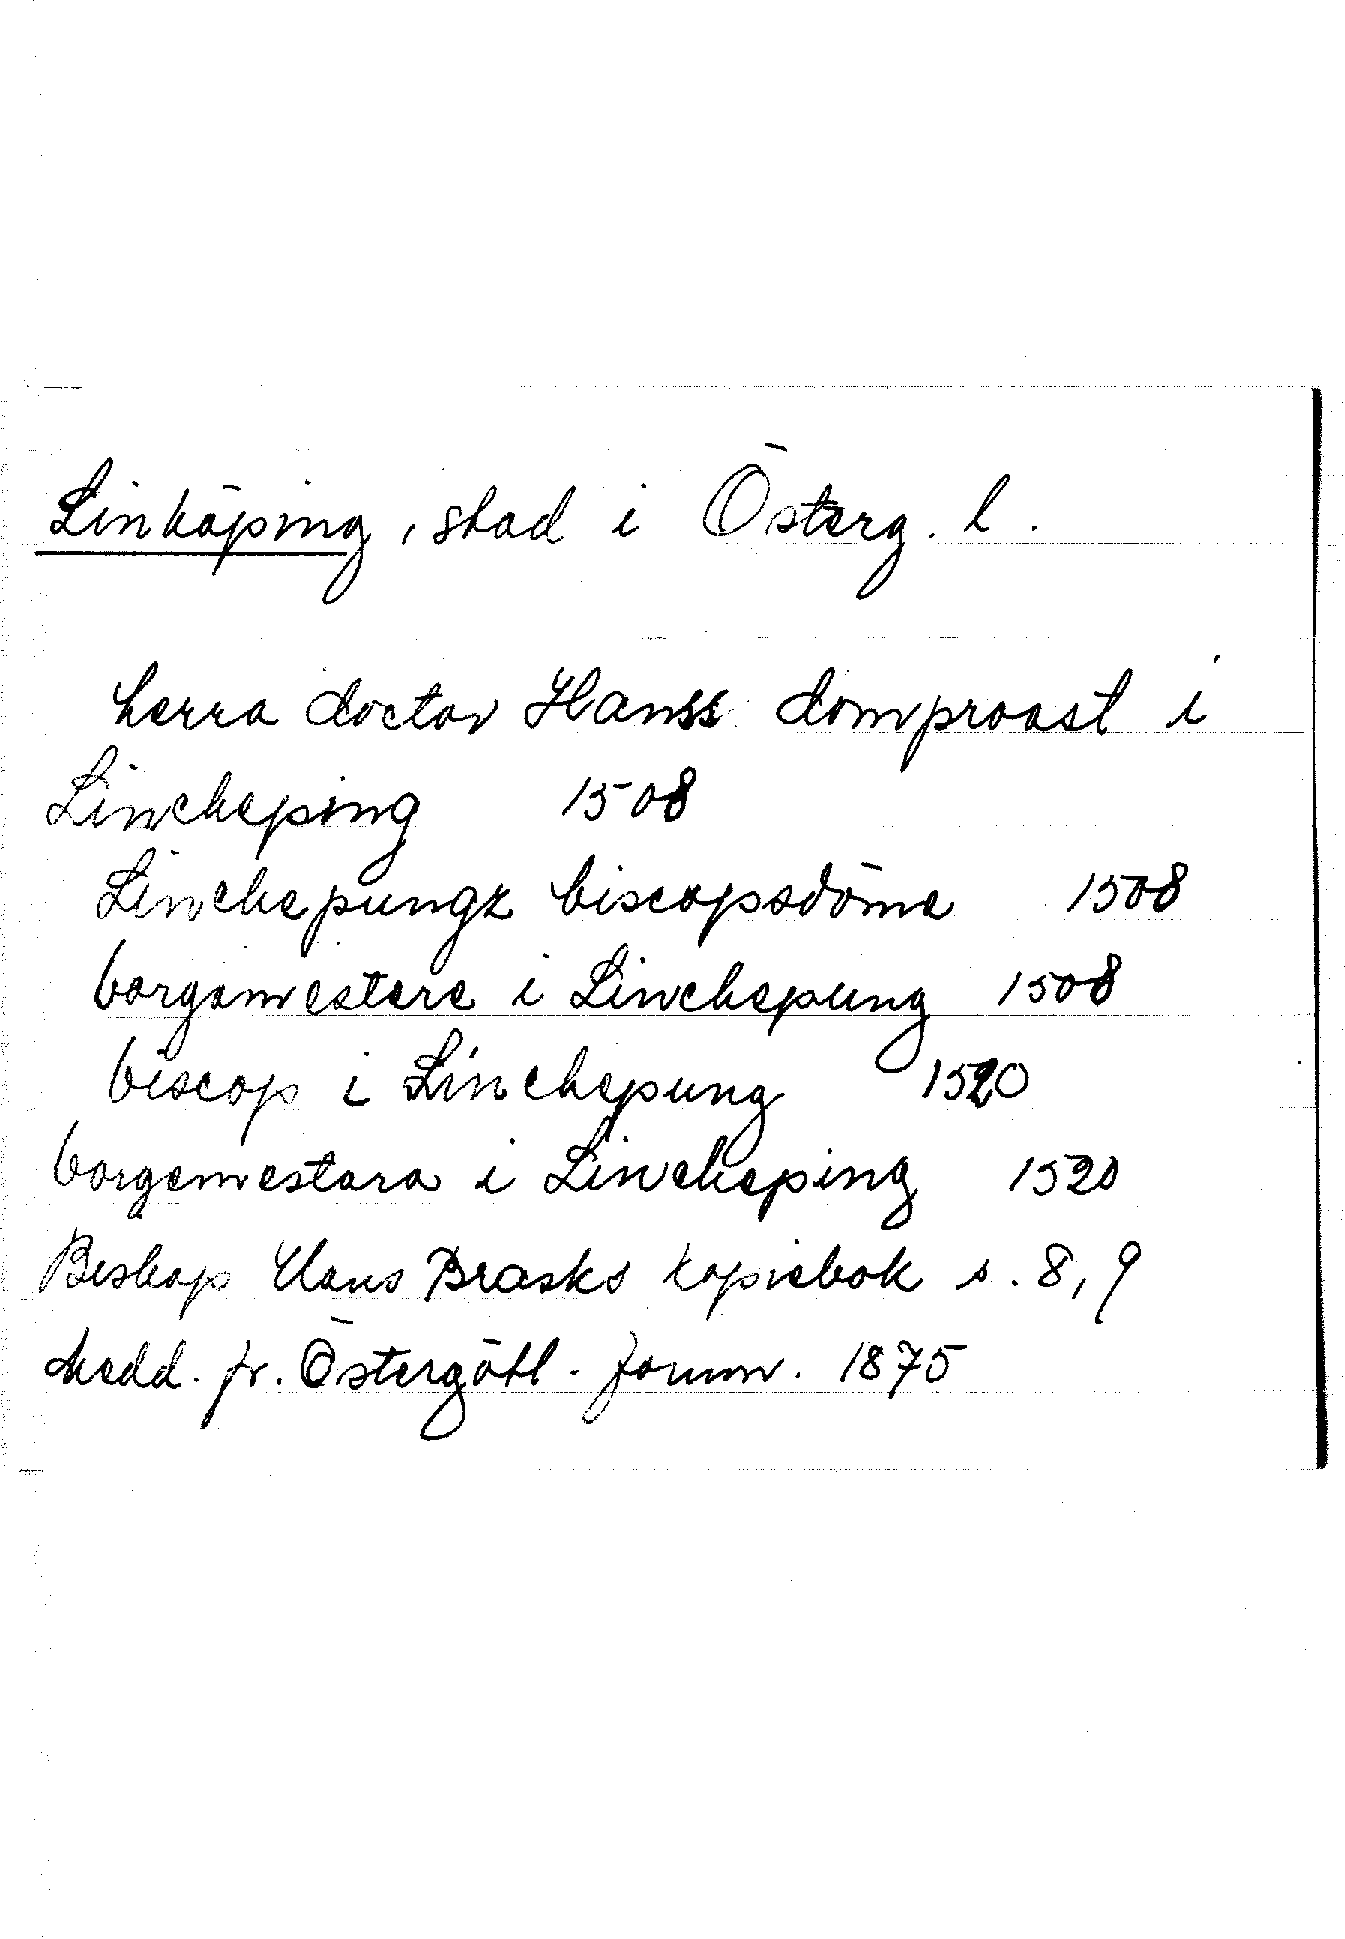 Linköping, stad i Österg. l.
herra doctor Hanss domproast i
Lincheping 1508
Linchepungz biscopsdöme 1508
borgamestere i Linchepung 1508
biscop i Linchepung 1520
borgemestara i Lincheping 1520
Biskop Hans Brasks kopiebok s. 8, 9
Medd. fr. Östergötl. fornm. 1875